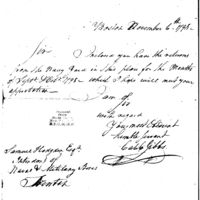 Boston November 6th 1798.
Sir
Inclosed you have the returns
from the Navy Yard in this place for the Months
of Sept & Octo. 1798 which I hope will meet your
approbation. I am
Sir
with regard
Your most Obedient
humble servant
Caleb Gibbs
Samuel Hodgdon Esq.
Intendant of
Naval & Military Stores
Trenton